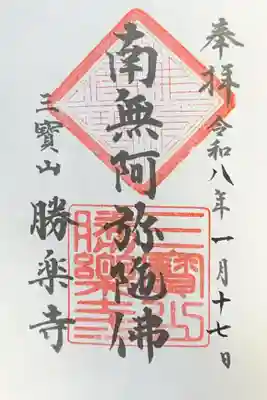 奉拝 令和八年一月十七日
南無阿弥陀佛
三寶山 勝楽寺
三寶山
勝樂寺